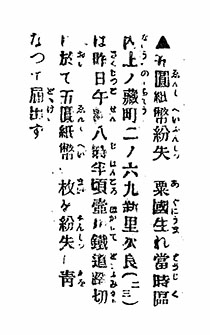 ▲五圓紙幣紛失　粟國生れ當時區
内上ノ藏町二ノ六九新里良(二三)
は昨日午八時半頃壺川鐵道踏切
に於て五圓紙幣　枚を紛失し青
なつて届出づ